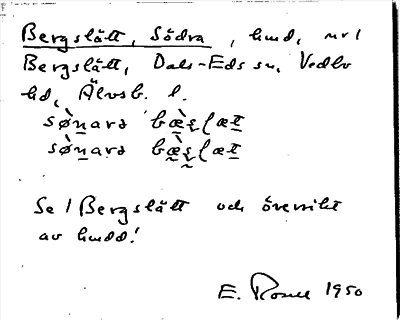 Bergslätt, Södra, hmd, nr 1
Bergslätt, Dals-Eds sn, Vedbo
hd, Älvsb. l.
sø̀n̲arə bæ̲̀ʂlæt̲
sø̀n̲arə bæ̲̀ʂlæt̲
Se / Bergslätt och översikt
av hmdd!
E. 1950